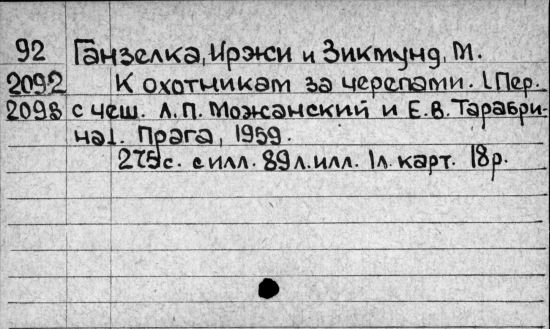 92 Ганзелка, Иржи и Зикмунд, М.
2092 К охотникам за черепами. [Пер.
2098 с чеш. Л.П. Можанский и Е.В. Тарабри-
на]. Прага, 1959.
275с. с илл. 89л.илл. 1л. карт. 18р.